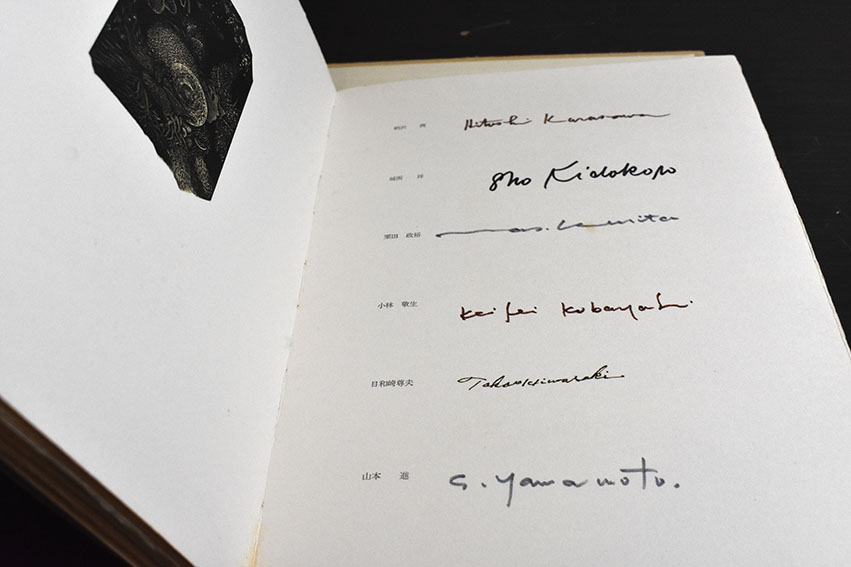 柄沢 齊 Hitoshi Karasawa
城所 祥 Sho Kidokoro
栗田 政裕 Mas. Kurita
小林 敬生 Keisei Kobayashi.
日和崎尊夫 Takao Hiwasaki
山本 進 S. Yamamoto.